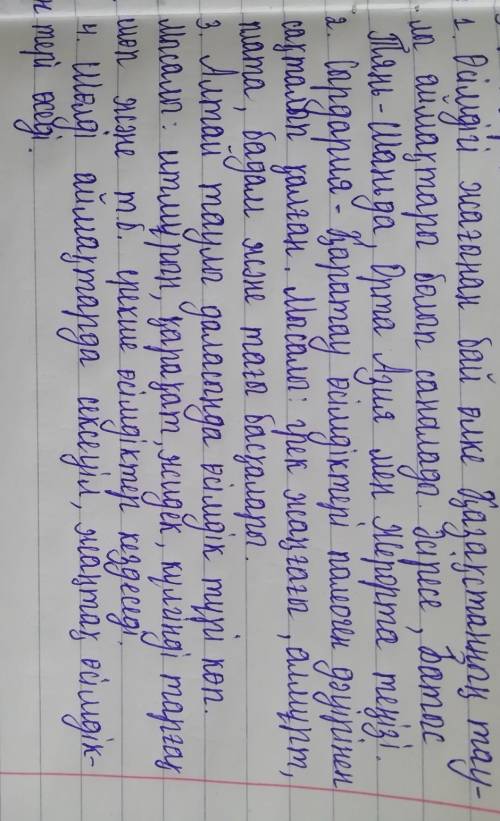 1. Өсімдігі жағынан бай өлке Қазақстанның тау-
лы аймақтары болып саналады. Әсіресе, батыс
Тянь-Шаньда, Орта Азия мен Жерорта теңізі.
2. Сырдария-Қаратау өсімдіктері палеоген дәуірінен
сақталып қалған. Мысалы: грек жаңғағы, алмұрт,
пста, бадам және тағы басқалары.
3. Алтай таулы даласында өсімдік түрі көп.
Мысалы: итмұрын, қарақат, жидек, күлгінді таңғау
шөп және т.б. ерекше өсімдіктер кездеседі.
4. Шөлді аймақтарда сексеуіл, жантақ өсімдік-
тері өседі.